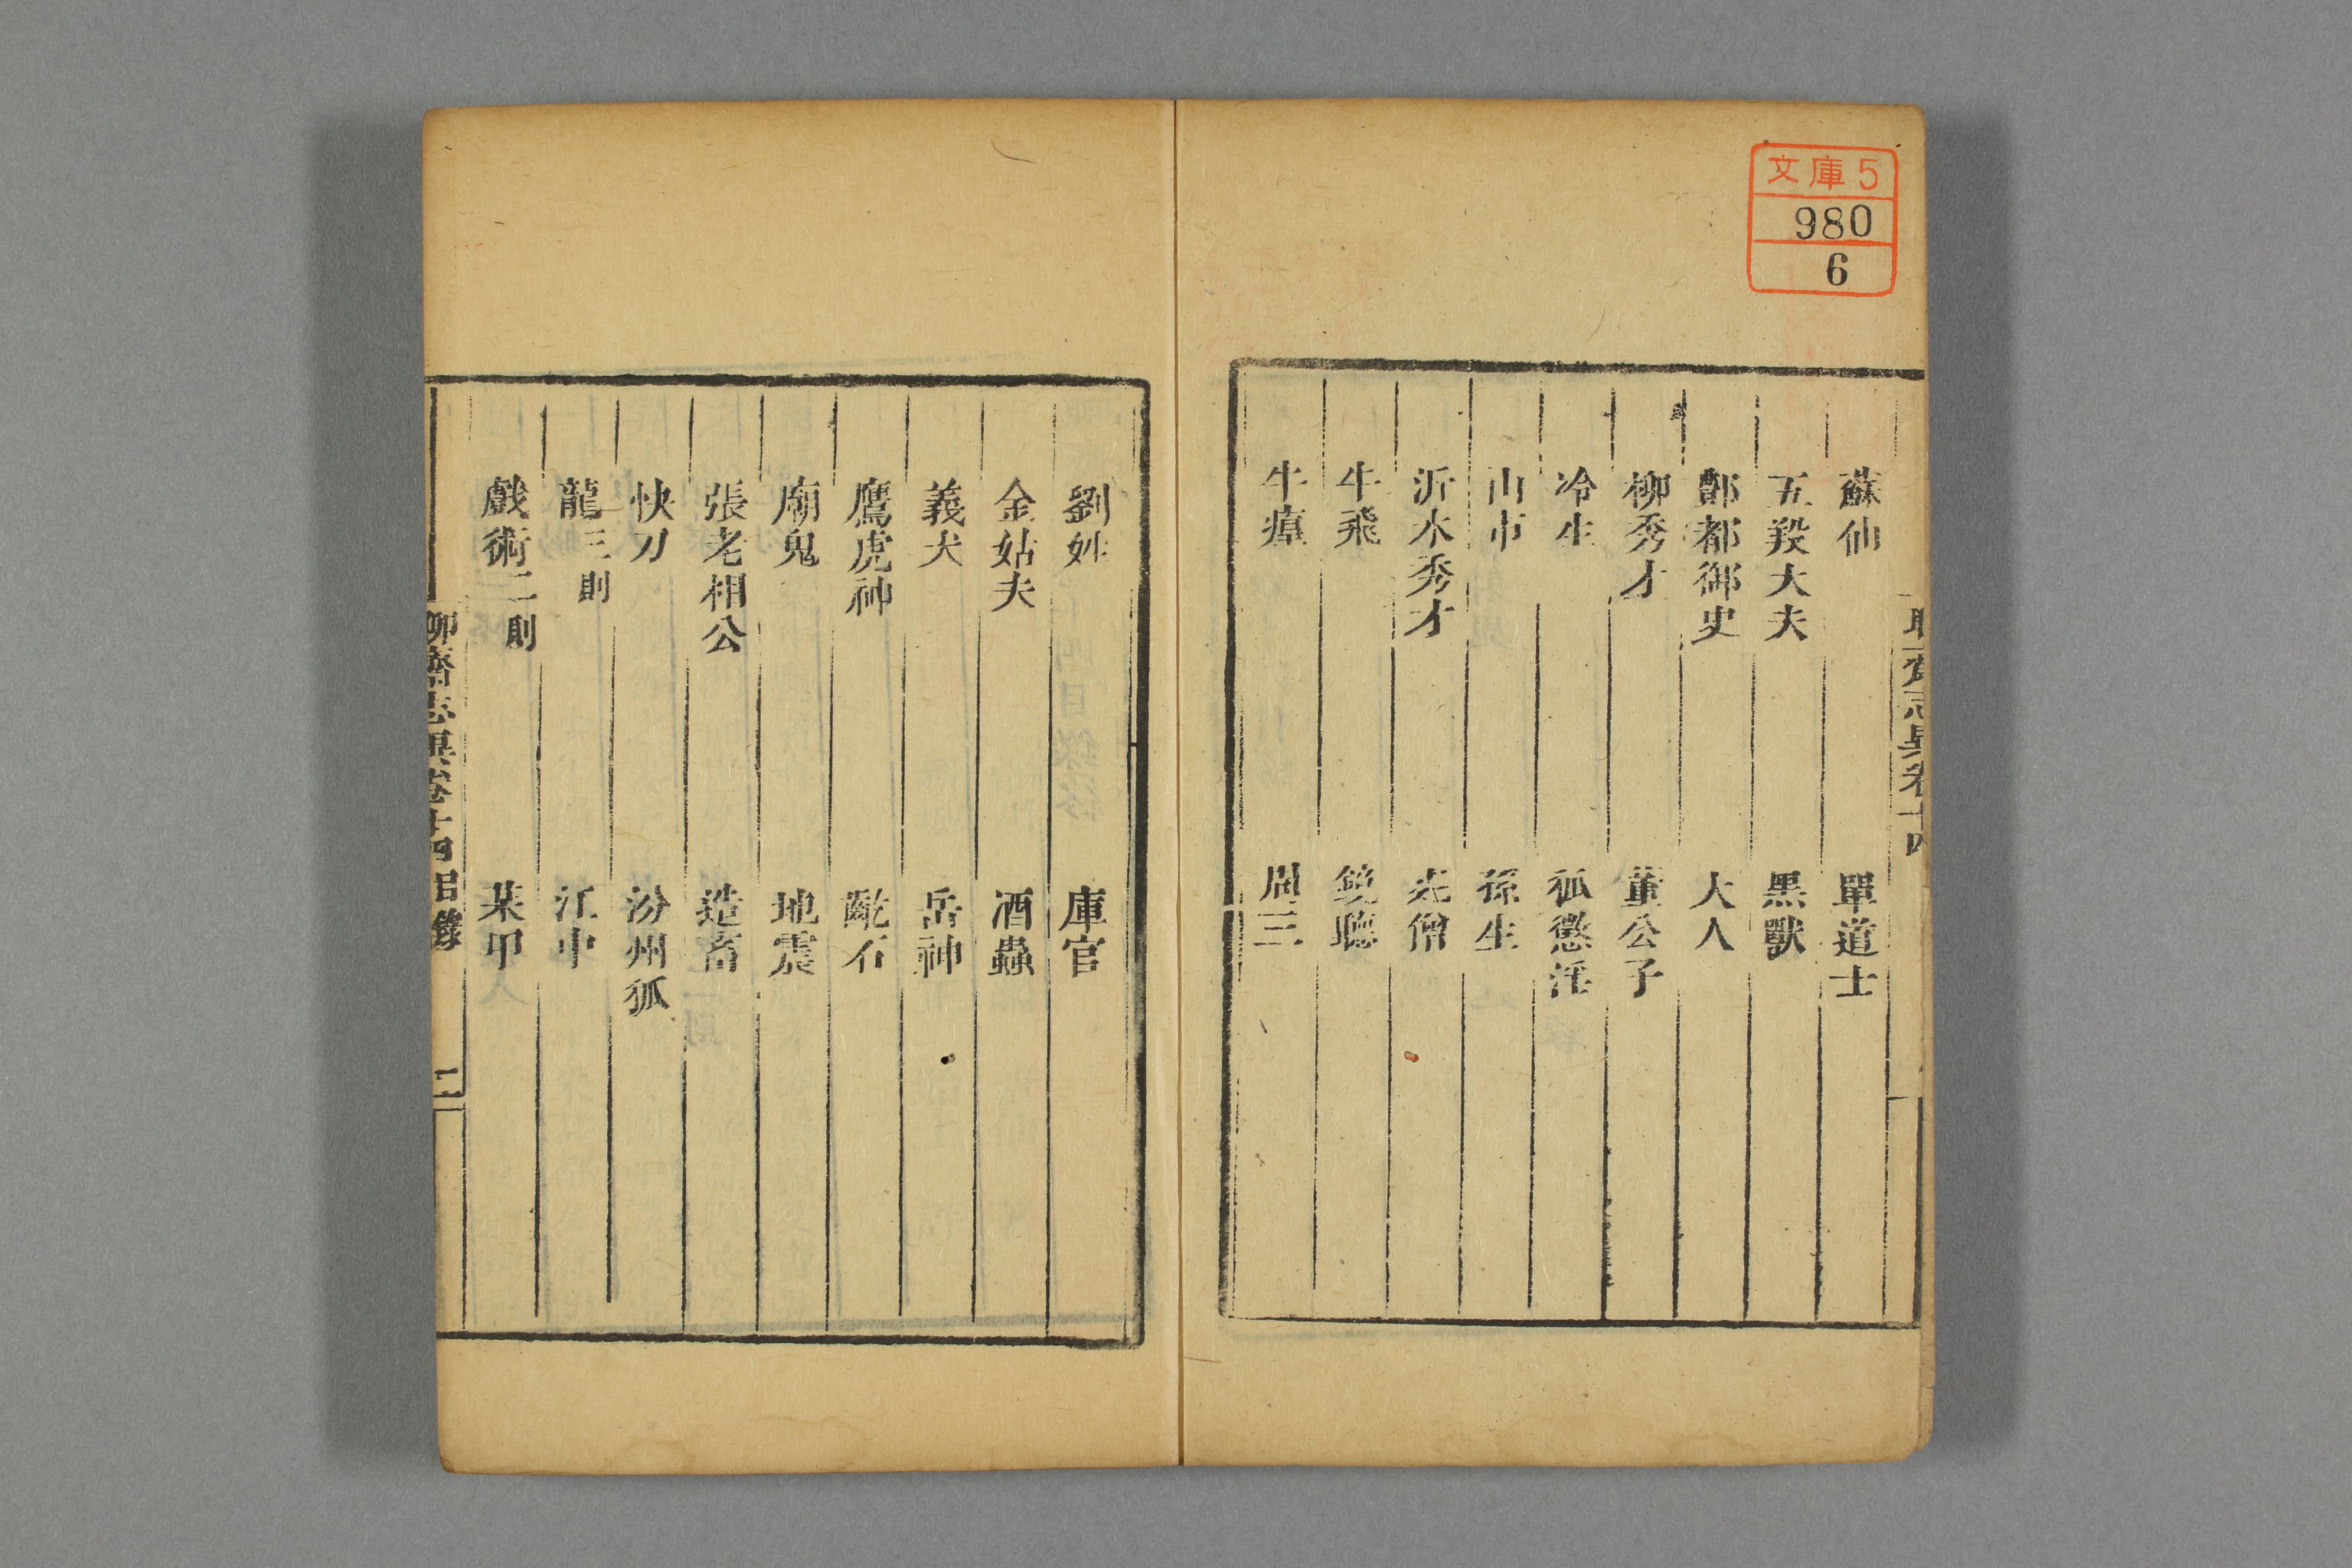 文庫5
980
6
聊齋志異卷十四
蘇仙 單道士
五羖大夫 黑獸
酆都御史 大人
柳秀才 董公子
冷生 狐懲淫
山市 孫生
沂水秀才 死僧
牛飛 鏡聽
牛㾮 周三
劉姓 庫官
金姑夫 酒蟲
義犬 岳神
鷹虎神 齕石
廟鬼 地震
張老相公 造畜
快刀 汾州狐
龍三則 江中
戲術二則 某甲
聊齋志異卷十四目錄 二